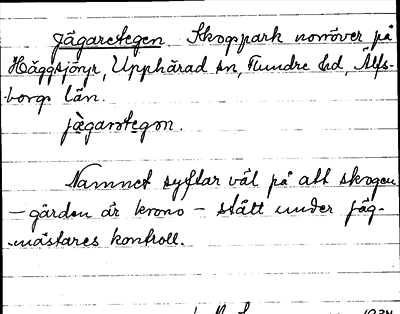 Jägaretegen. Skogspark norröver på
Häggsjöryr, Upphärad sn, Flundre hd, Älfs-
borgs län.
jä̀garətegən.
Namnet syftar väl på att skogen
– gården är krono – stått under jäg-
mästares kontroll.